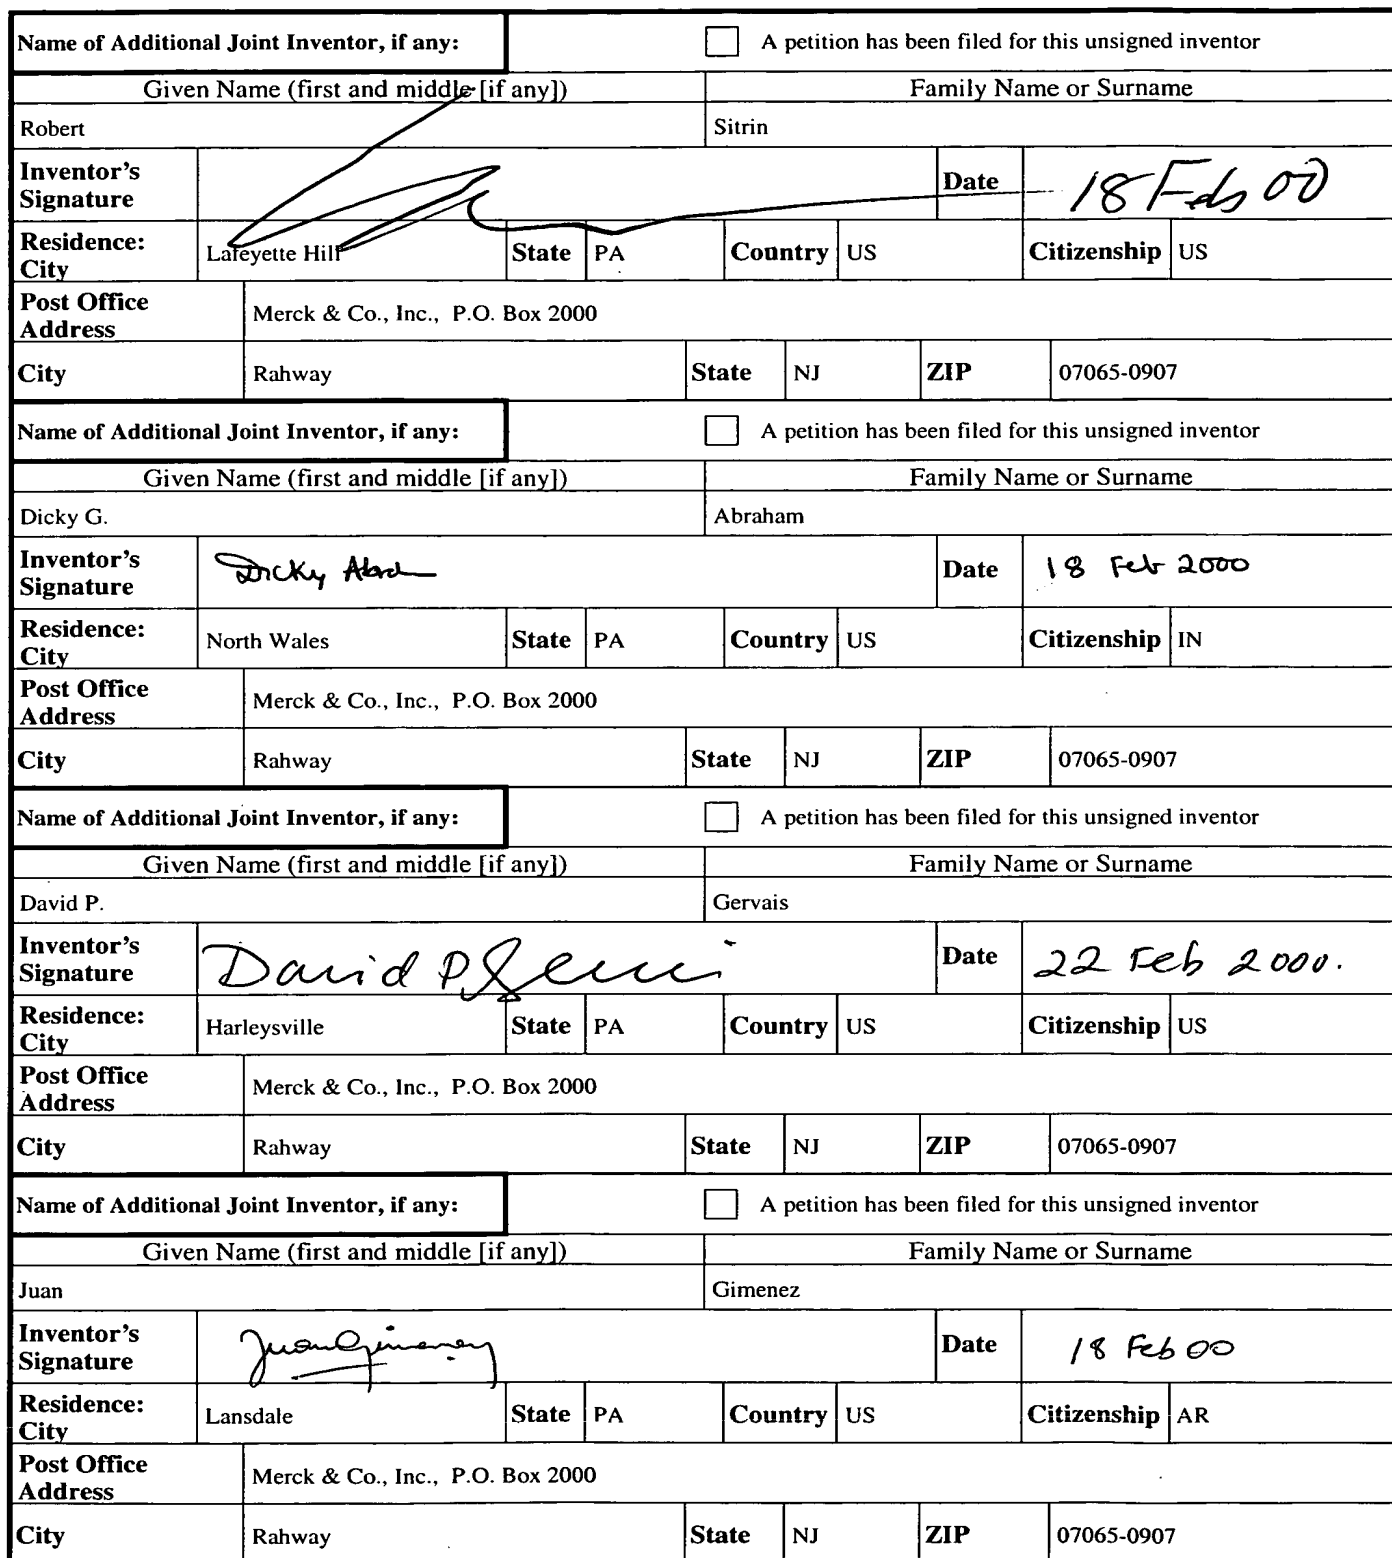 Name of Additional Joint Inventor, if any: A petition has been filed for this unsigned inventor
Given Name (first and middle [if any]) Family Name or Surname
Robert Sitrin
Inventor's Signature Date 18 Feb 00
Residence: City Lafeyette Hill State PA Country US Citizenship US
Post Office Address Merck & Co., Inc., P.O. Box 2000
City Rahway State NJ ZIP 07065-0907
Name of Additional Joint Inventor, if any: A petition has been filed for this unsigned inventor
Given Name (first and middle [if any]) Family Name or Surname
Dicky G. Abraham
Inventor's Signature Dicky Date 18 Feb 2000
Residence: City North Wales State PA Country US Citizenship IN
Post Office Address Merck & Co., Inc., P.O. Box 2000
City Rahway State NJ ZIP 07065-0907
Name of Additional Joint Inventor, if any: A petition has been filed for this unsigned inventor
Given Name (first and middle [if any]) Family Name or Surname
David P. Gervais
Inventor's Signature David P. Date 22 Feb 2000.
Residence: City Harleysville State PA Country US Citizenship US
Post Office Address Merck & Co., Inc., P.O. Box 2000
City Rahway State NJ ZIP 07065-0907
Name of Additional Joint Inventor, if any: A petition has been filed for this unsigned inventor
Given Name (first and middle [if any]) Family Name or Surname
Juan Gimenez
Inventor's Signature Juan Gimenez Date 18 Feb 00
Residence: City Lansdale State PA Country US Citizenship AR
Post Office Address Merck & Co., Inc., P.O. Box 2000
City Rahway State NJ ZIP 07065-0907